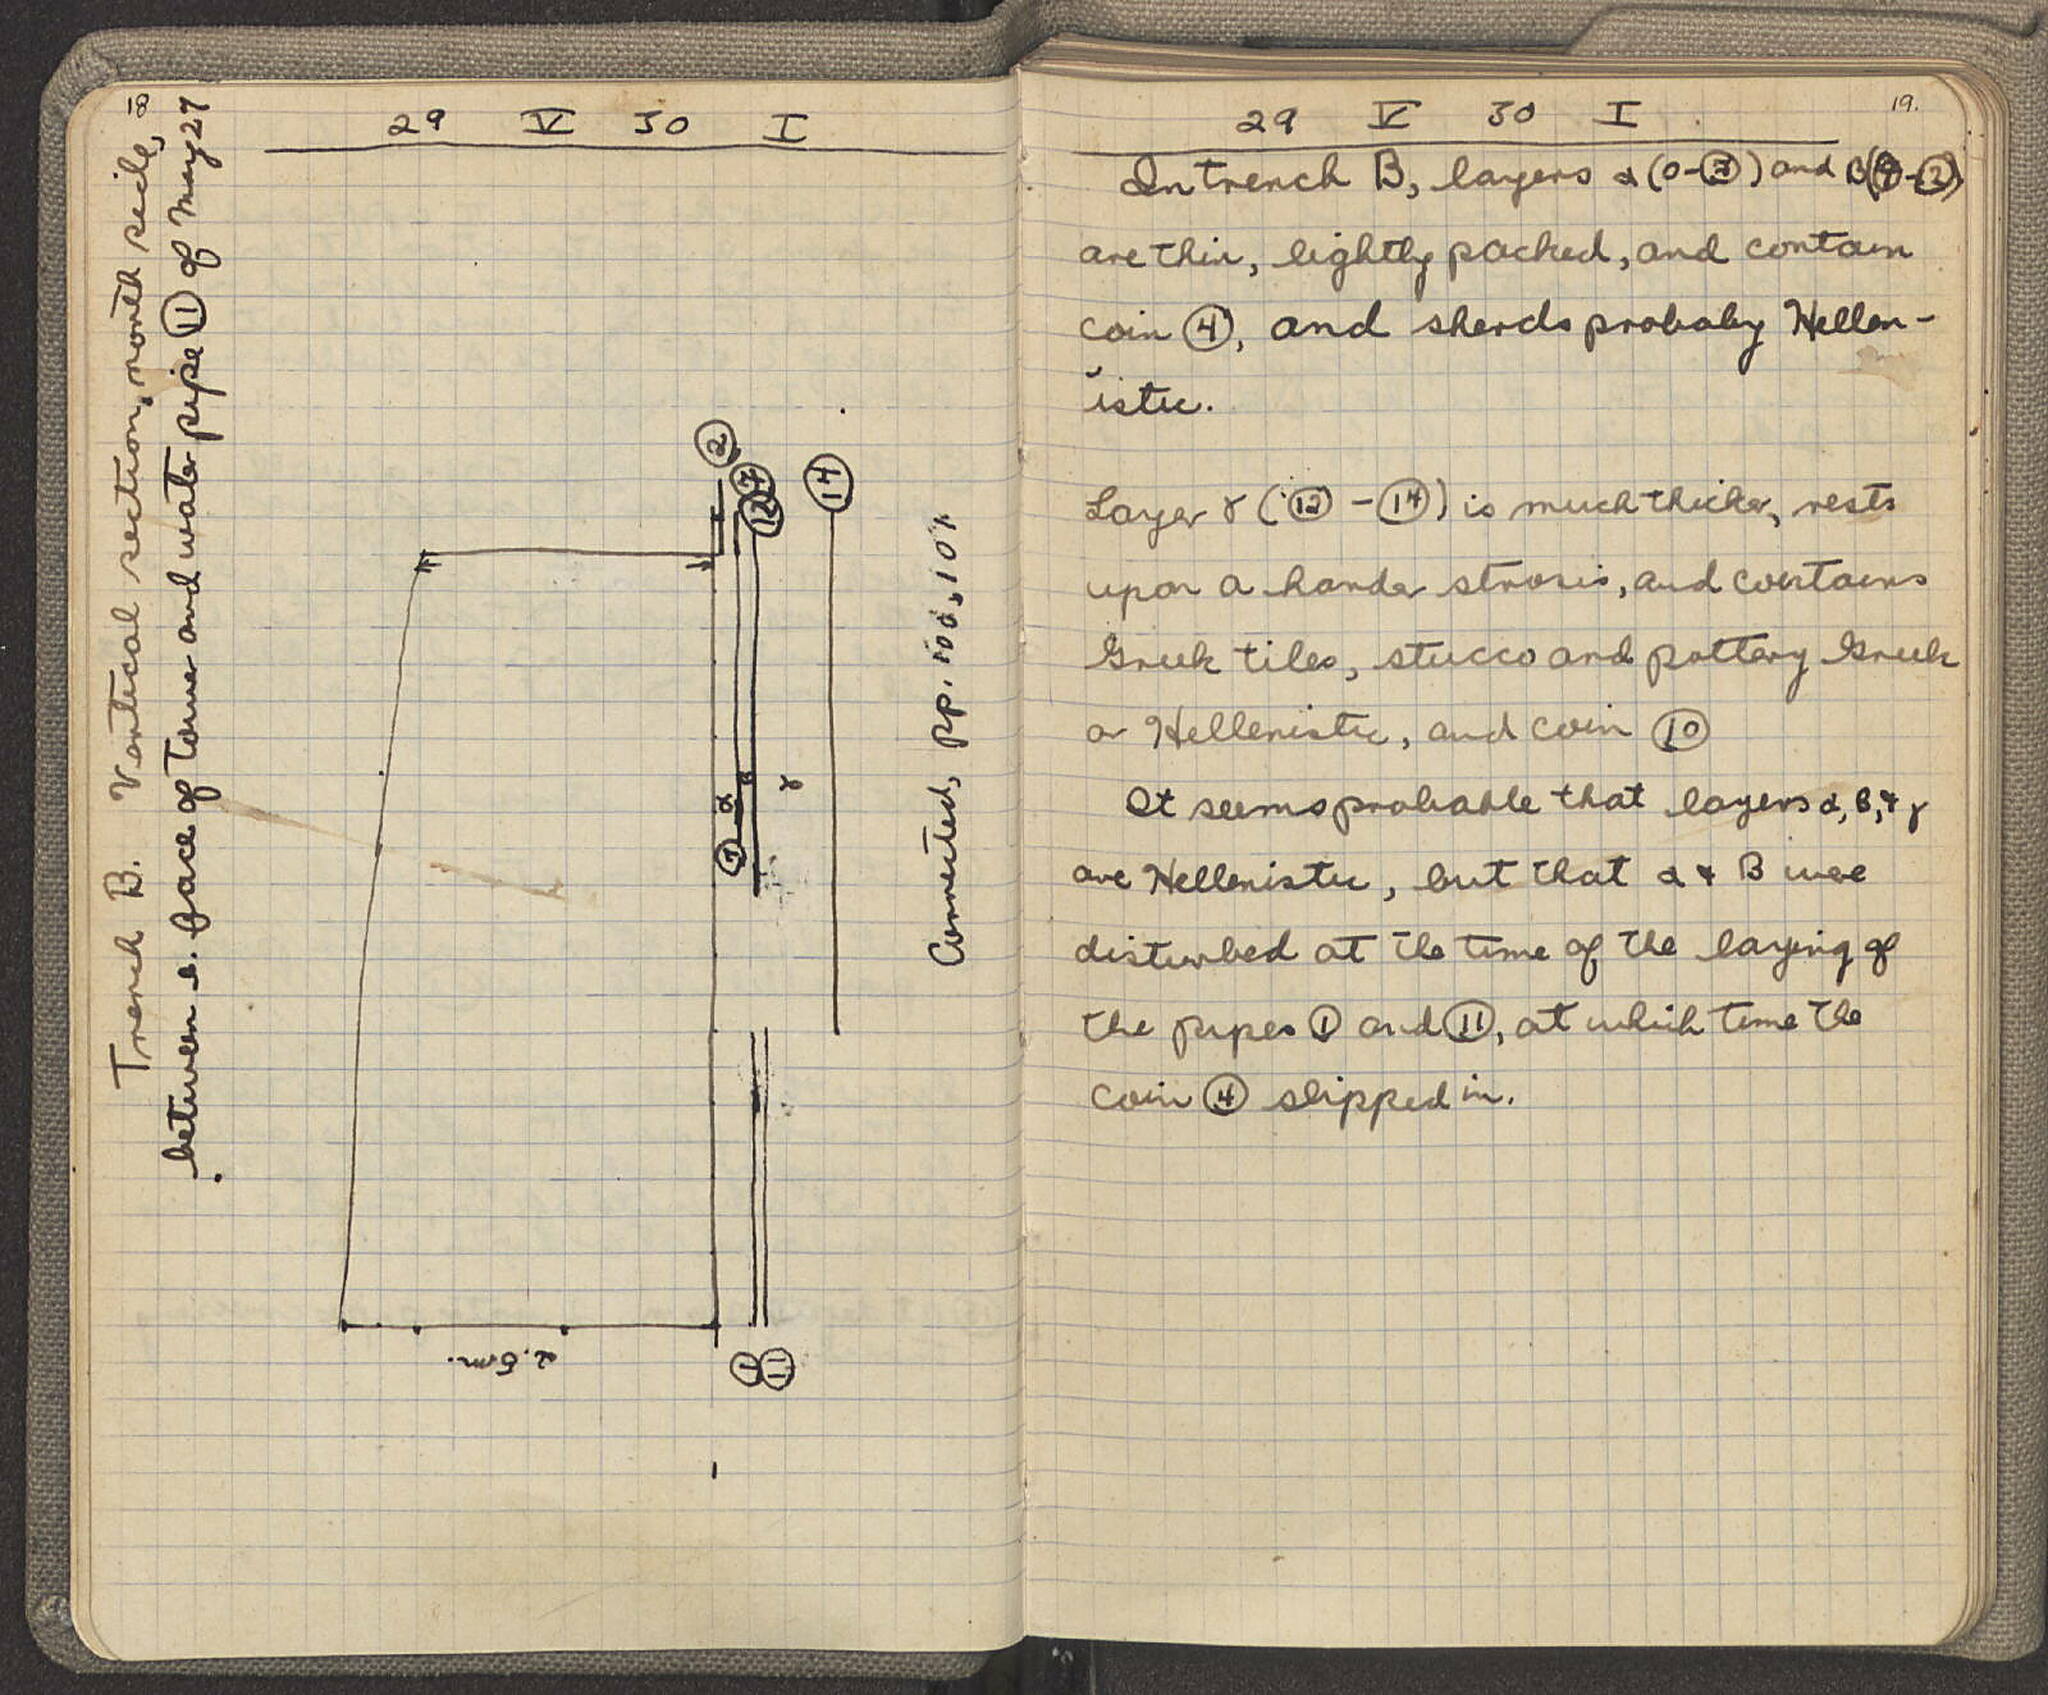 18
29 V 30 I
Trench B. Vertical section, north side,
between e. face of Tower and water pipe ⑪ of May 27
②
⑦
⑫
⑭
α
β
γ
⑦
2.5m.
①
⑪
Connected, pp. 100, 101
19.
29 V 30 I
In trench B, layers α (0-⑦) and β(⑦-⑫)
are thin, lightly packed, and contain
coin ④, and sherds probaby Hellen-
istic.
Layer γ (⑫-⑭) is much thicker, rests
upon a harder strosis, and contains
Greek tiles, stucco and pottery Greek
or Hellenistic, and coin ⑩
It seems probable that layers α, β, + γ
are Hellenistic, but that α + β were
disturbed at the time of the laying of
the pipes ① and ⑪, at which time the
coin ④ slipped in.